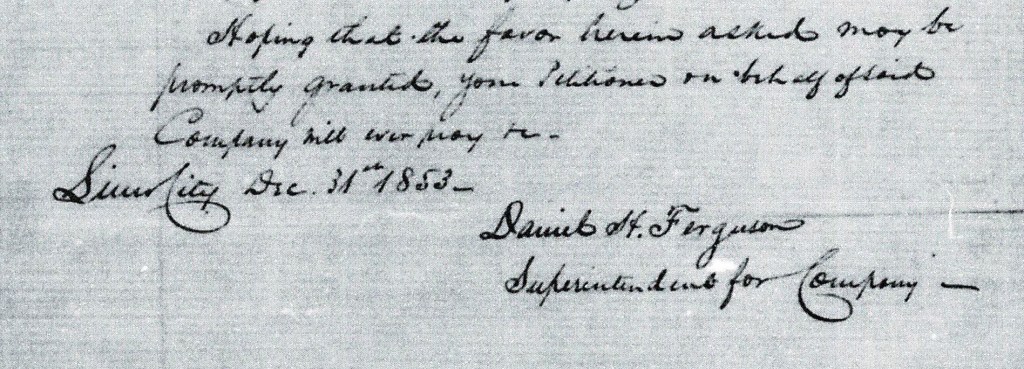 Hoping that the favor herein asked may be
promptly granted, your Petitioner on behalf of said
Company will ever pray &c -
City Dec. 31st 1853 -
Daniel H. Ferguson
Superintendent for Company -